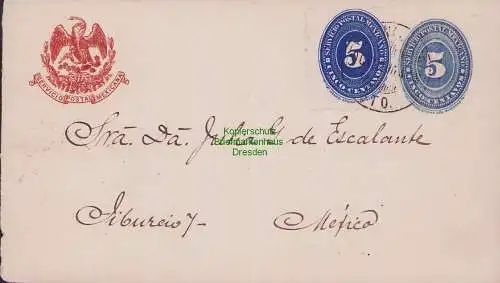 SERVICIO POSTAL MEXICANO
5
CINCO CENTAVOS
SERVICIO POSTAL MEXICANO
5
CINCO CENTAVOS
SERVICIO POSTAL MEXICANO
TO.
Kopierschutz
Briefmarkenhaus
Dresden
Sra. Da. de Escalante
Tiburcio 7-
México